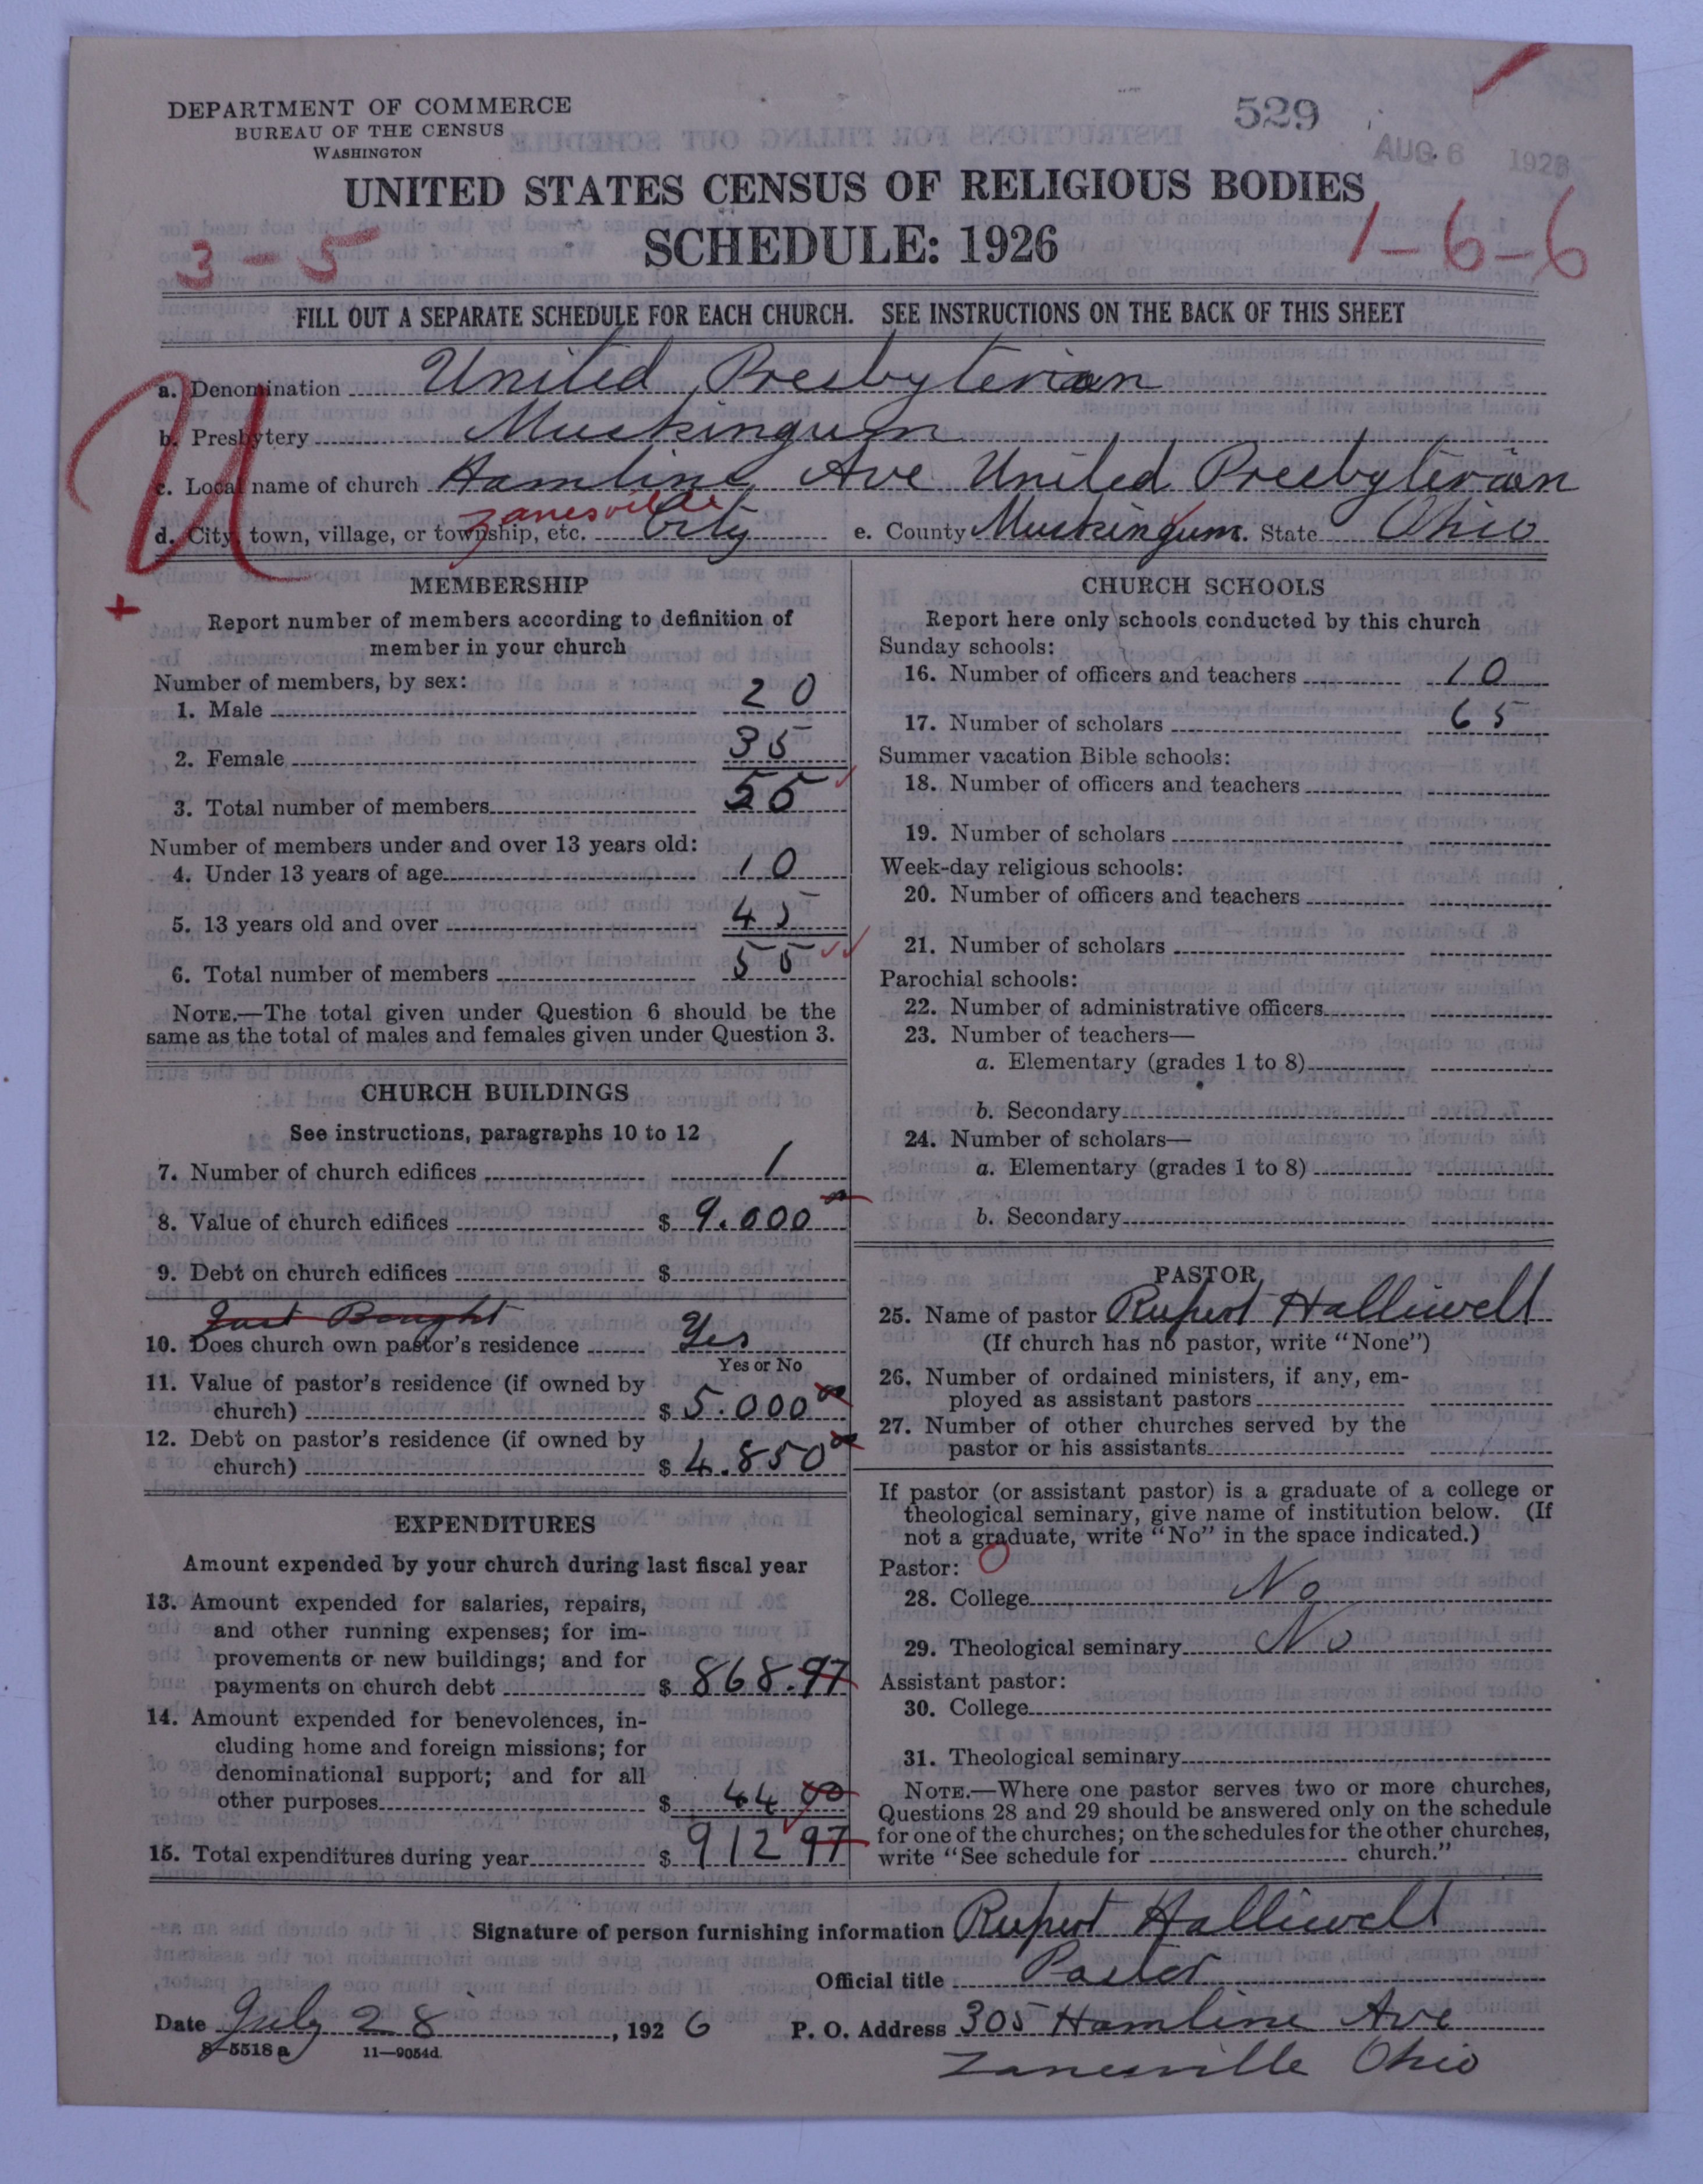 DEPARTMENT OF COMMERCE
BUREAU OF THE CENSUS
WASHINGTON
529
AUG 6 1926
UNITED STATES CENSUS OF RELIGIOUS BODIES
SCHEDULE: 1926
3-5
1-6-6
FILL OUT A SEPARATE SCHEDULE FOR EACH CHURCH. SEE INSTRUCTIONS ON THE BACK OF THIS SHEET
U
a. Denomination United Presbyterian
b. Presbytery Muskingum
c. Local name of church Hamline Ave United Presbyterian
d. City, town, village, or township, etc. Zanesville City e. County Muskingum. State Ohio
+
MEMBERSHIP
Report number of members according to definition of
member in your church
Number of members, by sex:
1. Male 20
2. Female 35
3. Total number of members 55
Number of members under and over 13 years old:
4. Under 13 years of age 10
5. 13 years old and over 45
6. Total number of members 55
NOTE.—The total given under Question 6 should be the
same as the total of males and females given under Question 3.
CHURCH BUILDINGS
See instructions, paragraphs 10 to 12
7. Number of church edifices 1
8. Value of church edifices $ 9.000 00
9. Debt on church edifices $
Just Bought
10. Does church own pastor's residence Yes
Yes or No
11. Value of pastor's residence (if owned by
church) $ 5.000 00
12. Debt on pastor's residence (if owned by
church) $ 4.850 00
EXPENDITURES
Amount expended by your church during last fiscal year
13. Amount expended for salaries, repairs,
and other running expenses; for im-
provements or new buildings; and for
payments on church debt $ 868.97
14. Amount expended for benevolences, in-
cluding home and foreign missions; for
denominational support; and for all
other purposes $ 44 00
15. Total expenditures during year $ 912 97
CHURCH SCHOOLS
Report here only schools conducted by this church
Sunday schools:
16. Number of officers and teachers 10
17. Number of scholars 65
Summer vacation Bible schools:
18. Number of officers and teachers
19. Number of scholars
Week-day religious schools:
20. Number of officers and teachers
21. Number of scholars
Parochial schools:
22. Number of administrative officers
23. Number of teachers—
a. Elementary (grades 1 to 8)
b. Secondary
24. Number of scholars—
a. Elementary (grades 1 to 8)
b. Secondary
PASTOR
25. Name of pastor Rupert Halliwell
(If church has no pastor, write "None")
26. Number of ordained ministers, if any, em-
ployed as assistant pastors
27. Number of other churches served by the
pastor or his assistants
If pastor (or assistant pastor) is a graduate of a college or
theological seminary, give name of institution below. (If
not a graduate, write "No" in the space indicated.)
Pastor: O
28. College No
29. Theological seminary No
Assistant pastor:
30. College
31. Theological seminary
NOTE.—Where one pastor serves two or more churches,
Questions 28 and 29 should be answered only on the schedule
for one of the churches; on the schedules for the other churches,
write "See schedule for church."
Signature of person furnishing information Rupert Halliwell
Official title Pastor
Date July 28, 1926 P. O. Address 305 Hamline Ave
8-5518a 11—9054d Zanesville Ohio